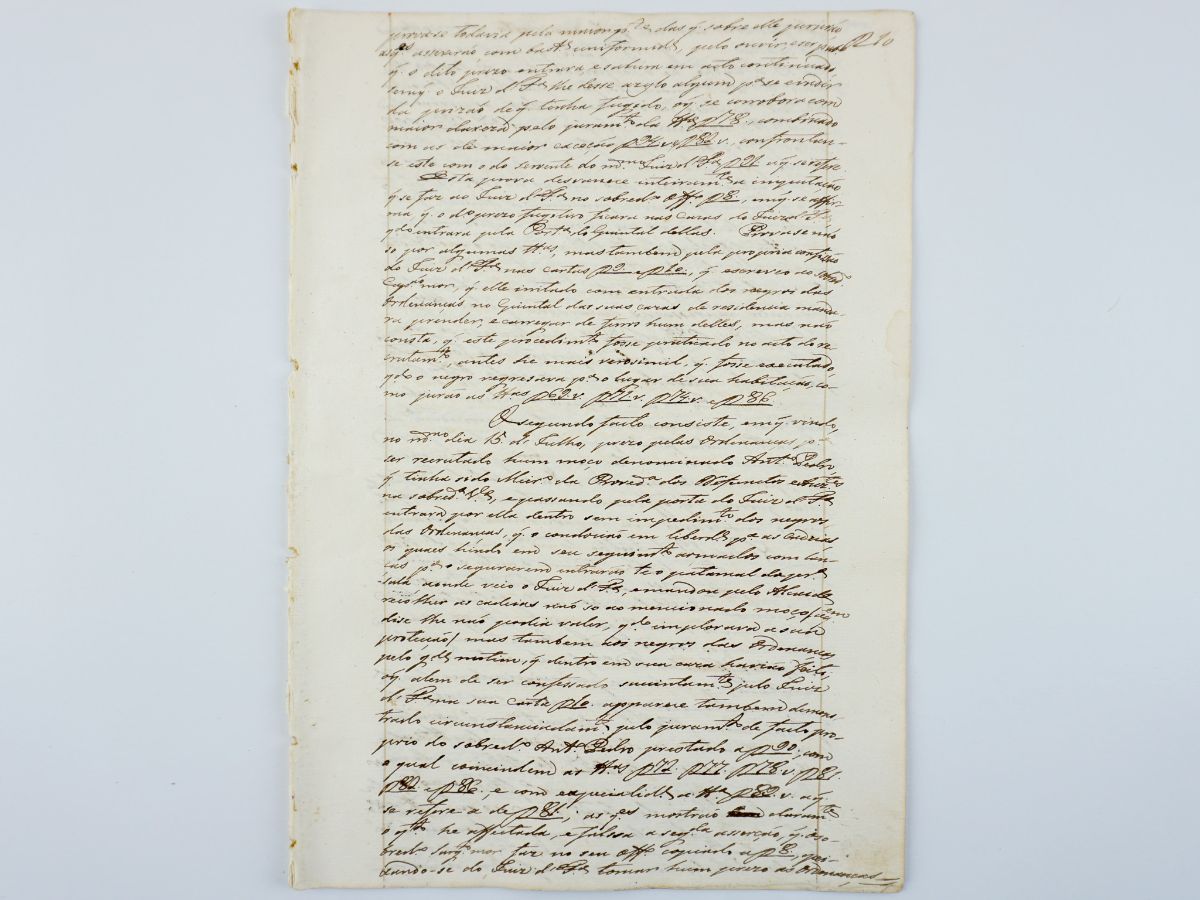 prova-se todavia pela maior p.te das q' sobre elle jurárão
as q.es asseverão com bast.e uniformid.e pelo ouvir, e ser pub.
q' o dito prezo entrara, e sahira em acto continuado
sem q' o Juiz d' F.a lhe desse azylo algum p.a se eximir
da prizão de q' tinha fugido, o q' se corrobora com
maior clareza pelo juram.to da tt.a p78. combinado
com as de maior exceção p24 v. p82 v. confrontan-
se este com o do servente do m.mo Juiz d' F.a p91 a q' se refere
Esta prova desvanece inteiram.te a imputação,
q' se faz ao Juiz d' F.a no sobred.o off.o p8, em q' se affir-
ma q' o d.o prezo fugitivo ficara nas cazas do Juiz d' F.a
q.do entrara pela Port.a do Quintal dellas. Prova-se não
so por algumas tt.as, mas tambem pela propria confissão
do Juiz d' F.a nas cartas p9 e p10, q' escreveo ao
Cap.m mor, q' elle irritado com entrada dos negros das
Ordenanças no Quintal das suas cazas de residencia manda-
ra prender, e carregar de ferros hum delles, mas não
consta, q' este procedim.to fosse praticado no acto do re-
crutam.to, antes he mais verosimil q' fosse executado
q.do o negro regresava p.a o lugar de sua habitação, co-
mo jurão as tt.as p69 v. p71 v. p74 v. e p86.
O segundo facto consiste, em q' vindo,
no m.mo dia 15 d' Julho, prezo pelas Ordenanças p.a
ser recrutado hum moço denominado Ant.o Pedro
q' tinha sido Meir.o da Proved.a dos Defuntos e Auz.tes
na sobred.a V.a, e passando pela porta do Juiz d' F.a
entrara por ella dentro sem impedim.to dos negros
das Ordenanças, q' o conduzião em liberd.e p.a as Cadeias
os quaes hindo em seu seguim.to armados com lan-
ças p.a o segurarem entrarão te o patamal da pr.a
sala aonde veio o Juiz d' F.a, e mandou pelo Alcaide
recolher as cadeias não so ao mencionado moço (a q.m
dise lhe não podia valer, q.do implorava a sua
protecção) mas tambem aos negros das Ordenanças
pelo g.de motim, q' dentro em sua caza havião feito,
o q' alem de ser confessado sucintam.te pelo Juiz
d' F.a na sua carta p10. apparece tambem demons-
trado circunstanciadam.te pelo juram.to de facto pro-
prio do sobred.o Ant.o Pedro prestado a p90. com
o qual coincidem as tt.as p72. p77. p78. v. p81.
p82 e p86., e com especialid.e a tt.a p82. v. a q'
se refere a de p81.; as q.es mostrão claram.te
o q.to he affectada, e falssa a seg.da asserção, q' o so-
bred.o Sarg.o mor faz no seu off.o copiado a p8., quei-
xando-se do Juiz d' F.a tomar hum prezo as Ordenanças